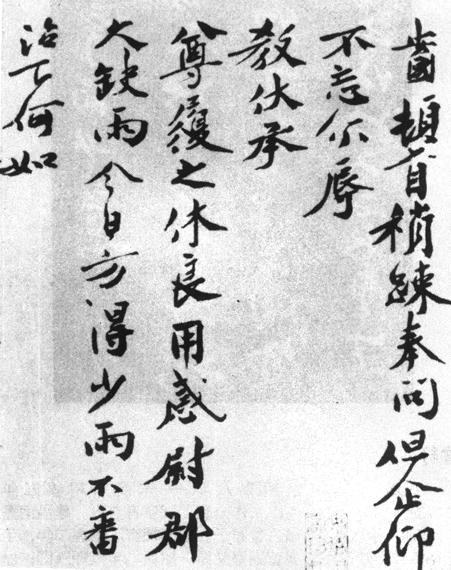 頓首稍踈奉問但企仰
不忘尒辱
教伏承
尊履之休良用感尉郡
久缺雨今日方得少雨不審
治下何如